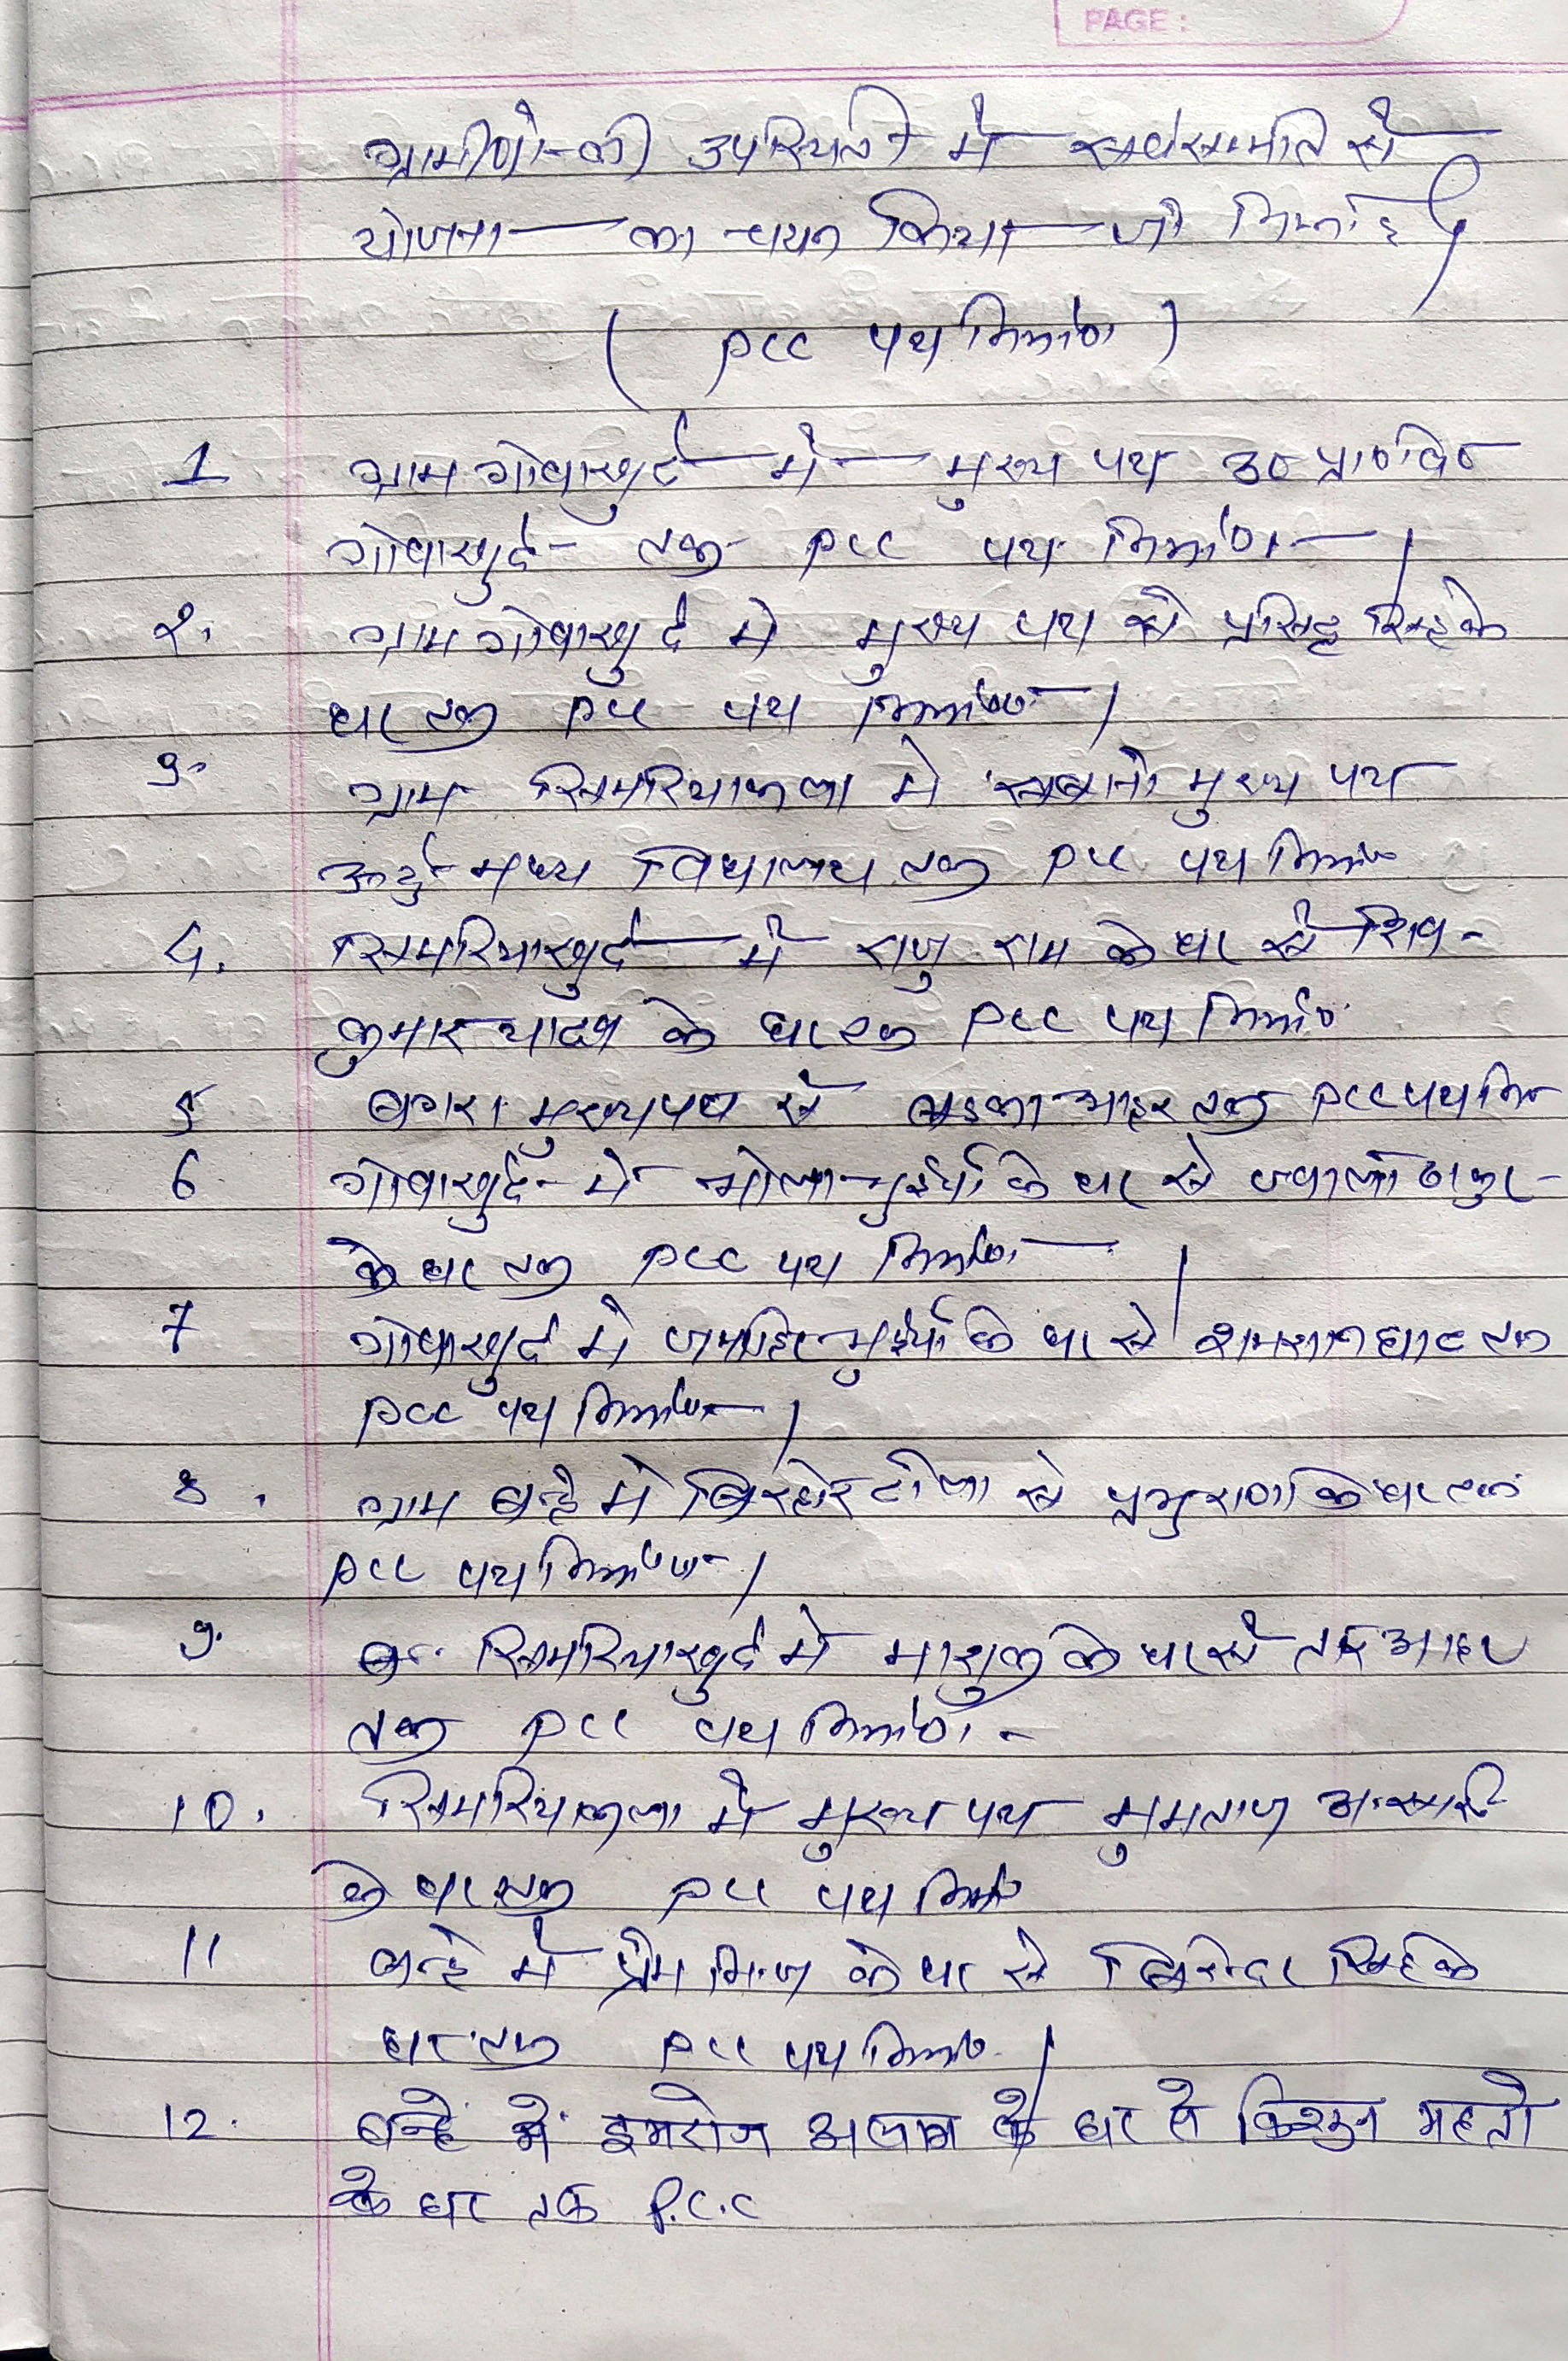 PAGE :
ग्रामीणो की उपस्थिती में सर्वसम्मति से
योजना का चयन किया जो निम्न है
( PCC पथ निर्माण )
1 ग्राम गोवाखुर्द में मुख्य पथ उ० प्रा० वि०
गोवाखुर्द तक PCC पथ निर्माण ।
2. ग्राम गोवाखुर्द मे मुख्य पथ से प्रसिद्ध सिंह के
घर तक PCC पथ निर्माण ।
3. ग्राम सिमरियाकला मे मुख्य पथ
उर्दु मध्य विधालय तक PCC पथ निर्माण
4. सिमरियाखुर्द में राजु राम के घर से शिव-
कुमार यादव के घर तक PCC पथ निर्माण
5 मुख्यपथ से बडका आहर तक PCC पथ नि०
6 गोवाखुर्द में भोला भुईयाँ के घर से ठाकुर
के घर तक PCC पथ निर्माण
7 गोवाखुर्द मे भुईयाँ के घर से शमशान घाट तक
PCC पथ निर्माण ।
8. ग्राम बन्हे मे बिरहोर टोला से के घर तक
PCC पथ निर्माण ।
9. सिमरियाखुर्द मे के घर से आहर
तक PCC पथ निर्माण
10. सिमरियाकला मे मुख्य पथ मुमताज अन्सारी
के घर तक PCC पथ निर्माण
11 बन्हे में प्रेम के घर से सिंह के
घर तक PCC पथ निर्माण ।
12. बन्हे में इमरोज आलाम के घर से किशुन महतो
के घर तक P.C.C